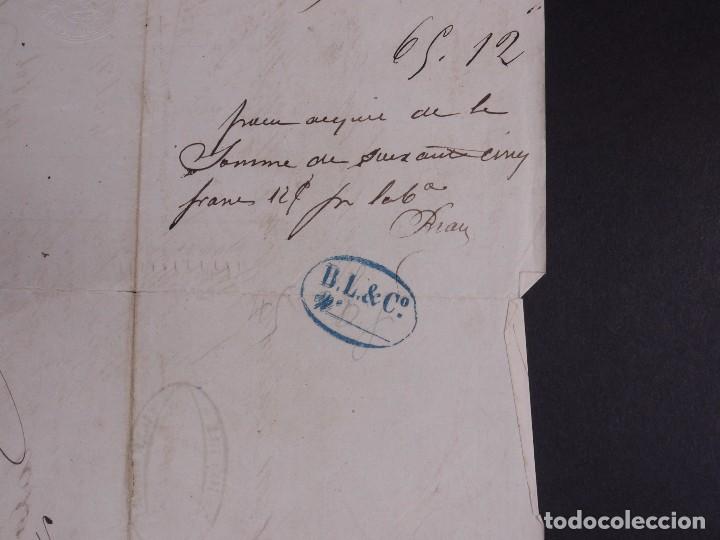 65. 12
pour acquit de la
Somme de soixante cinq
francs 12
B.L.&Cº.
Nº
todocoleccion.net